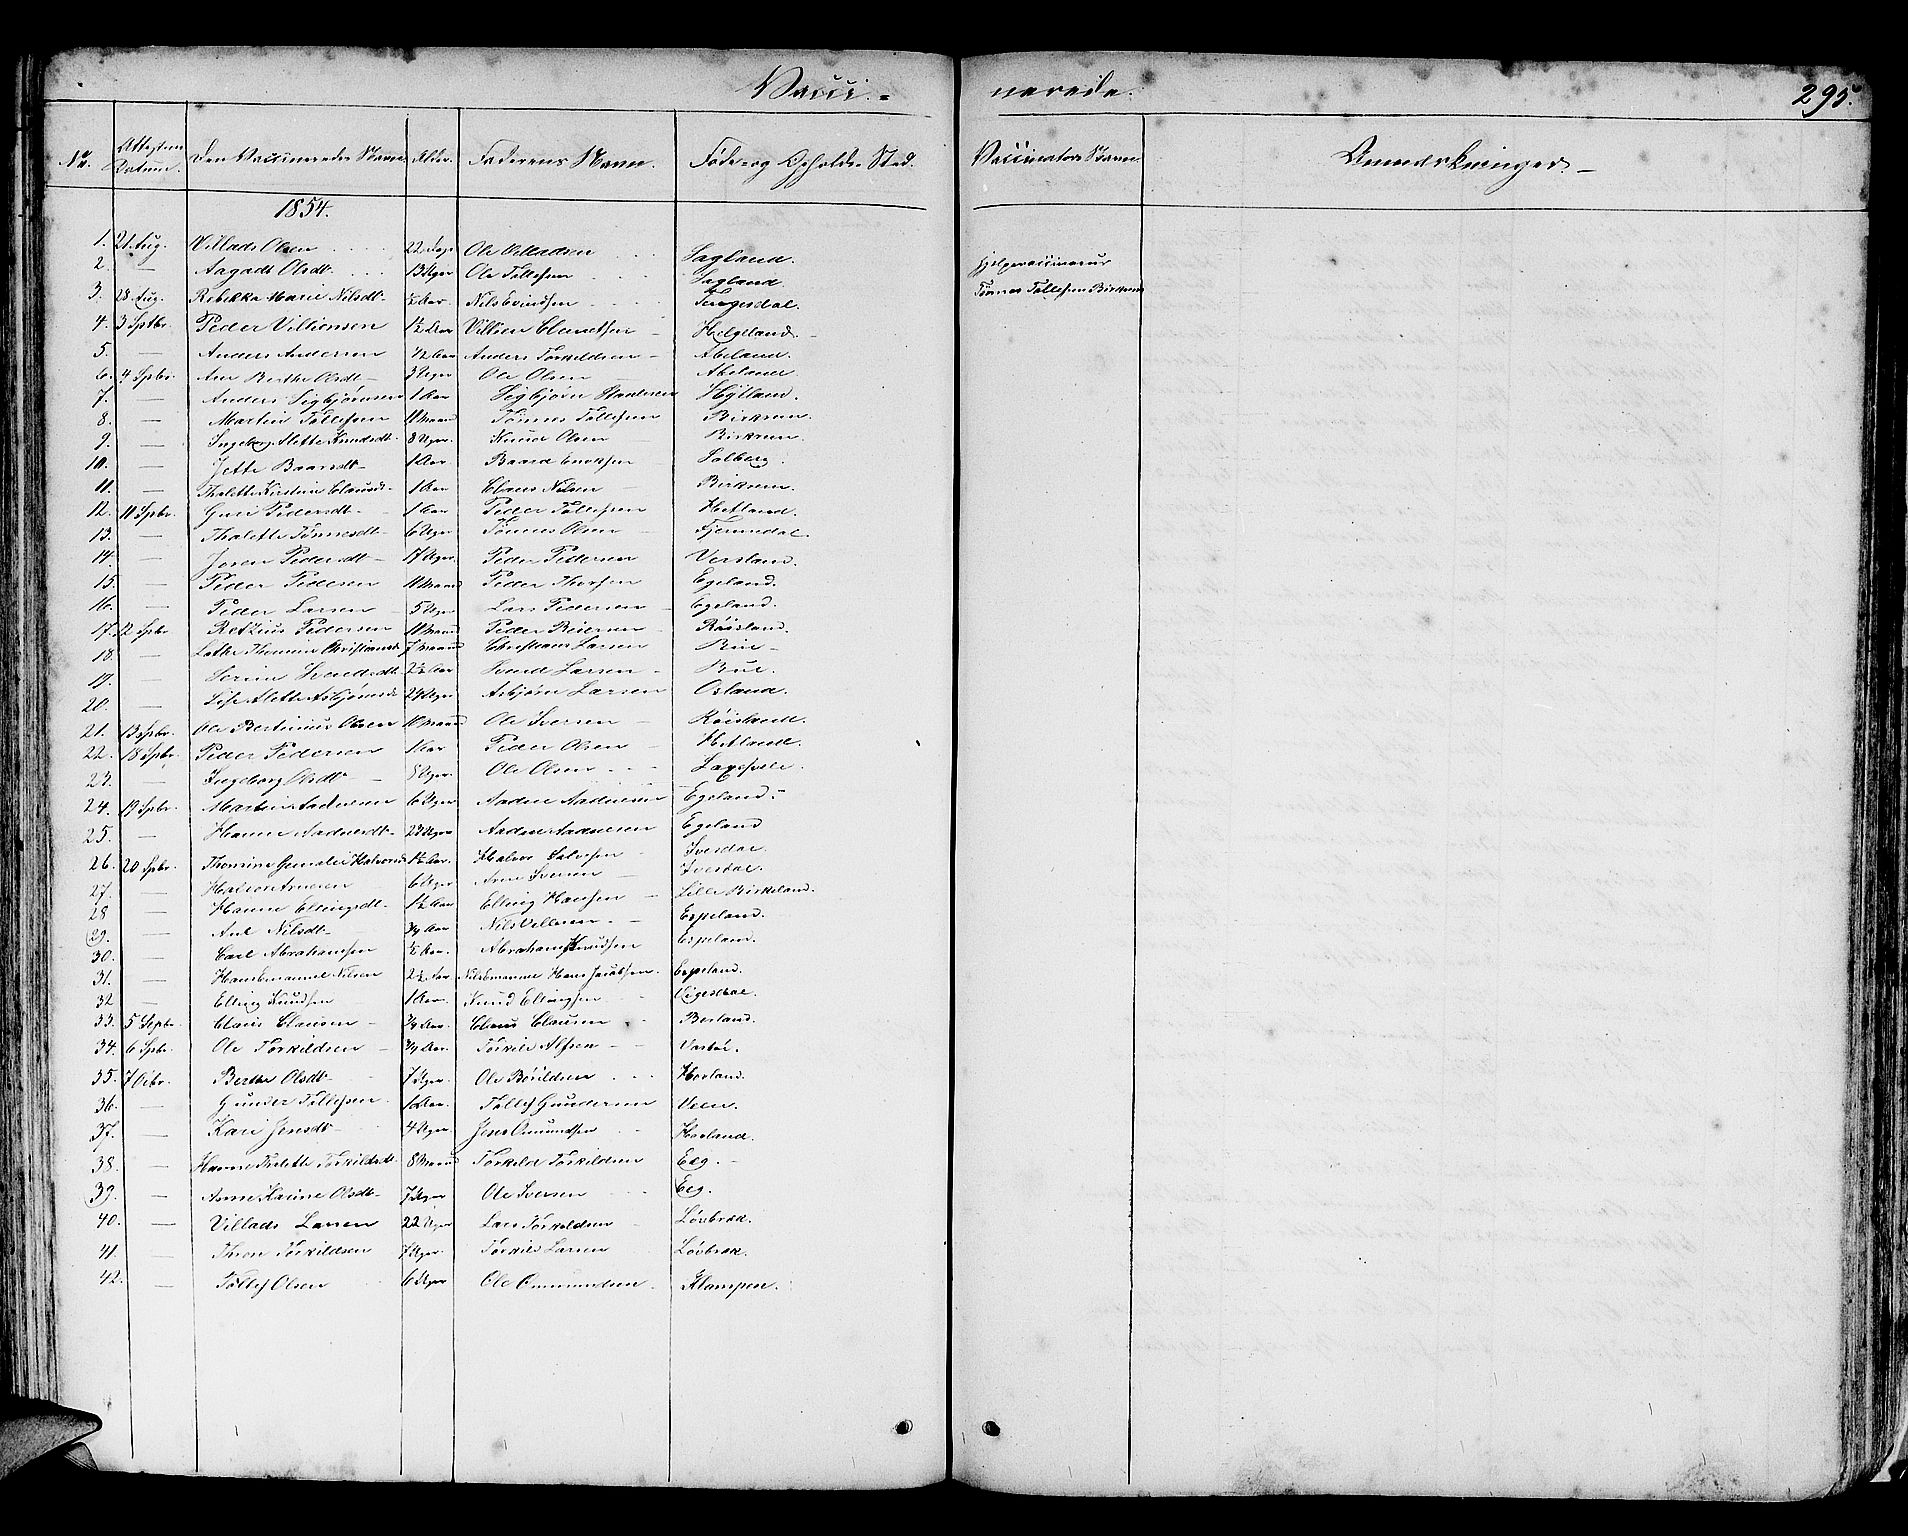 Vacci- nerede. 295.
No. Attestens Datum. Den Vaccineredes Navn Alder. Faderens Navn. Føde- og Opholds-Sted. Vaccinators Navn. Anmærkninger.
1854.
1. 21 Aug. Villads Olsen 22 Dage Ole Villadsen Sagland. Hjelpevaccinateur
2. — Aagadt Olsdt- 13 Uger Ole Tollefsen Sagland. Tønnes Tollefsen Birkrem
3. 28 Aug. Rebekka Marie Nilsdt- ½ Aar. Nils Evindsen Tengesdal.
4. 3 Sptbr. Peder 1½ Aar Helgeland.
5. — Anders Andersen ½ Aar Anders Torkildsen Abeland.
6. 4 Spbr. Ane Berthe Olsdt- 3 Uger Ole Olsen Abeland
7. — Anders Sigbjørnsen 1 Aar Sigbjørn Hytland.
8. — Martin Tollefsen 11 Maand Tønnes Tollefsen Birkrem.
9. — Ingeborg Alette Knudsdt. 8 Uger. Knud Olsen Birkrem.
10. — Jette Baardsdt- 1 Aar. Baard Solberg.
11. — Thalette Kirstine Clausdt- 1 Aar Claus Nilsen Birkrem.
12. 11 Spbr. Guri Pedersdt- 1 Aar Peder Tollefsen Hetland.
13. — Thalette Tønnesdt- 6 Uger Tønnes Olsen Fjermedal.
14. — Joren Pedersdt- 17 Uger. Peder Pedersen Versland.
15. — Peder Pedersen 11 Maand Peder Thorsen Egeland.
16. — Peder Larsen 5 Uger Lars Pedersen Egeland.
17. 12 Spbr Retzius Pedersen 11 Maand Peder Reiersen Røisland.
18. — 7 Maand Christian Larsen Bue
19. — Serine Svendsdt 2½ Aar Svend Larsen Bue.
20. — Lise Alette Asbjørnsdt 24 Uger Asbjørn Larsen Osland.
21. 13 Spbr. Ole Bertinius Olsen 10 Maand Ole Iversen Røisland.
22. 18 Spbr. Peder Pedersen 1 Aar Peder Olsen Hetland.
23. — Ingeborg Olsdt- 8 Uger. Ole Olsen Laxesvele.
24. 19 Spbr. Martin Aadnesen 6 Uger Aadne Aadnesen Egeland.
25. — Hanne Aadnesdt- 23 Uger Aadne Aadnesen Egeland
26. 20 Spbr. Thomine 1½ Aar. Halvor Salvesen Ivesdal.
27. — 6 Uger Arne Iversen Ivesdal.
28 — Hanne Ellingsdt. 1½ Aar Elling Hansen Lille Birkeland.
29. — Ane Nilsdt- ¾ Aar Nils Villesen Espeland.
30. — Carl Abrahamsen ½ Aar. Abraham Knudsen Espeland.
31. — Hans Emanuel Nilsen 2½ Aar Nils Emanuel Hans Jacobsen. Espeland.
32 — Elling Knudsen 1 Aar. Knud Ellingsen Vigesdal.
33. 5 Septbr. Claus Clausen ¾ Aar. Claus Clausen Besland.
34. 6 Spbr. Ole Torkildsen ¾ Aar. Torkild Alfsen
35. 7 Octbr. Berthe Olsdt- 7 Uger. Ole Bårildsen Hovland.
36. — Gunder Tollefsen 1 Aar. Tollef Gundersen Veen.
37. — Kari Jensdt- 4 Uger. Jens Omundsen Hovland.
38. — Hanne Thalette Torkildsdt. 8 Maand Torkild Torkildsen Eeg.
39. — Anne Karine Olsdt- 7 Uger Ole Iversen Eeg.
40. — Villads Larsen 22 Uger Lars Torkildsen Løvbræk.
41. — Thron Torkildsen 7 Uger. Torkild Larsen Løvbræk.
42. — Tollef Olsen 6 Uger Ole Ommundsen. Klampen.